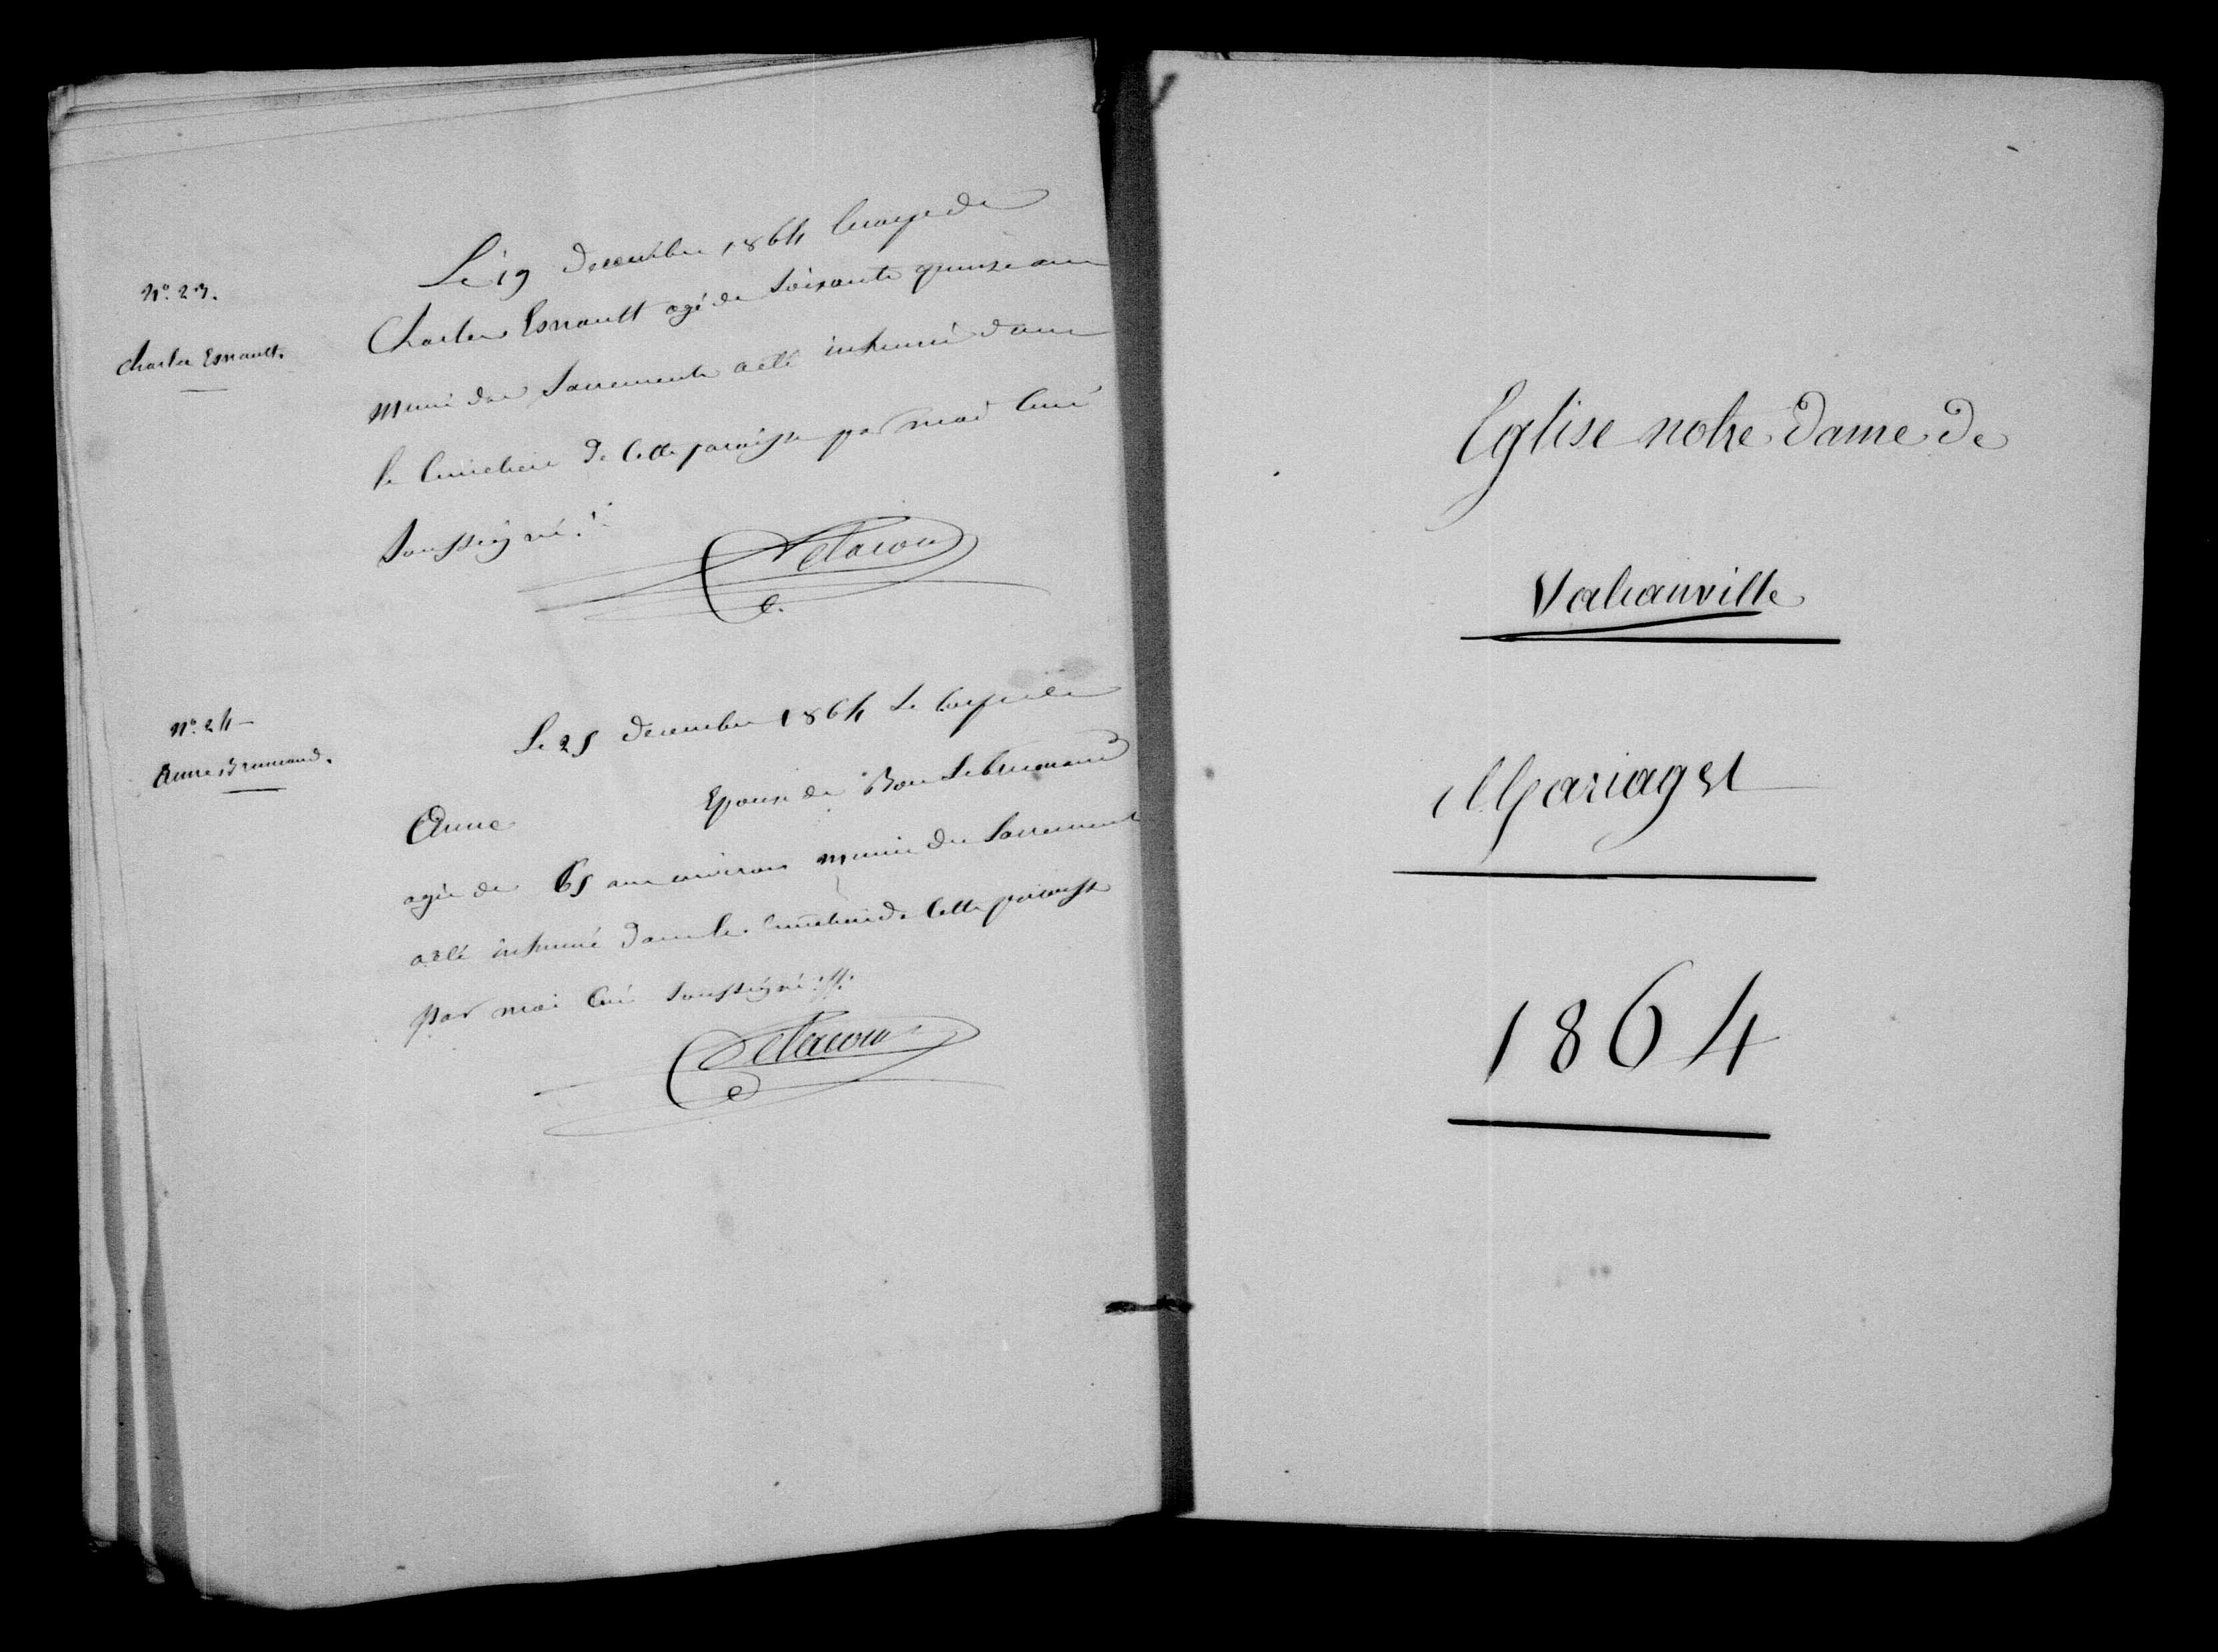 N° 23.
Charles Esnault.
Le 19 decembre 1864 le corps de
Charles Esnault agé de soixante quinze ans
muni des Sacrements a été inhumé dans
le Cimetiere de Cette paroisse par moi Curé
soussigné.
Delacour
N° 24
Anne Brumand.
Le 25 decembre 1864 le Corps de
Anne Epouse de Bon Lebrumand
agée de 65 ans environs munie des Sacrement
a été inhumé dans le Cimetiere de Cette paroisse
par moi Curé soussigné
Delacour
Eglise notre Dame de
Valcanville
Mariages
1864